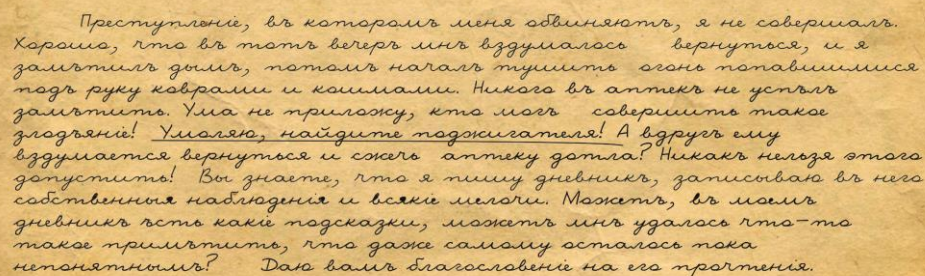 Преступленіе, въ которомъ меня обвиняютъ, я не совершалъ.
Хорошо, что въ тотъ вечеръ мнѣ вздумалось вернуться, и я
замѣтилъ дымъ, потомъ началъ тушить огонь попавшимися
подъ руку коврами и кошмами. Никого въ аптекѣ не успѣлъ
замѣтить. Ума не приложу, кто могъ совершить такое
злодѣяніе! Умоляю, найдите поджигателя! А вдругъ ему
вздумается вернуться и сжечь аптеку дотла? Никакъ нельзя этого
допустить! Вы знаете, что я пишу дневникъ, записываю въ него
собственныя наблюденія и всякіе мелочи. Можетъ, въ моемъ
дневникѣ ѣсть какіе подсказки, можетъ мнѣ удалось что-то
такое примѣтить, что даже самому осталось пока
непонятнымъ? Даю вамъ благословеніе на его прочтенія.